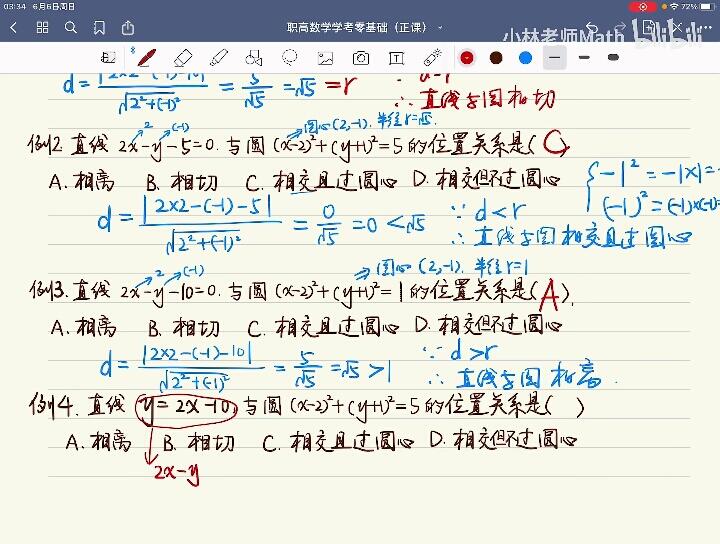 03:34 6月6日周日
72%
职高数学学考零基础（正课）
小林老师Math
bilibili
d = |2×2-(-1)-10| / √(2²+(-1)²) = 5/√5 = √5 = r
∴ 直线与圆相切
圆心(2,-1). 半径r=√5.
2 (-1)
例2. 直线 2x-y-5=0. 与圆 (x-2)²+(y+1)²=5 的位置关系是( C )
A. 相离 B. 相切 C. 相交且过圆心 D. 相交但不过圆心
-1² = -1×1 =
(-1)² = (-1)×(-1)=
d = |2×2-(-1)-5| / √(2²+(-1)²) = 0/√5 = 0 < √5 ∵ d<r
∴ 直线与圆相交且过圆心
圆心(2,-1). 半径r=1
2 (-1)
例3. 直线 2x-y-10=0. 与圆 (x-2)²+(y+1)²=1 的位置关系是( A ).
A. 相离 B. 相切 C. 相交且过圆心 D. 相交但不过圆心
d = |2×2-(-1)-10| / √(2²+(-1)²) = 5/√5 = √5 > 1 ∵ d>r
∴ 直线与圆相离.
例4. 直线 y=2x-10, 与圆 (x-2)²+(y+1)²=5 的位置关系是( )
A. 相离 B. 相切 C. 相交且过圆心 D. 相交但不过圆心
2x-y